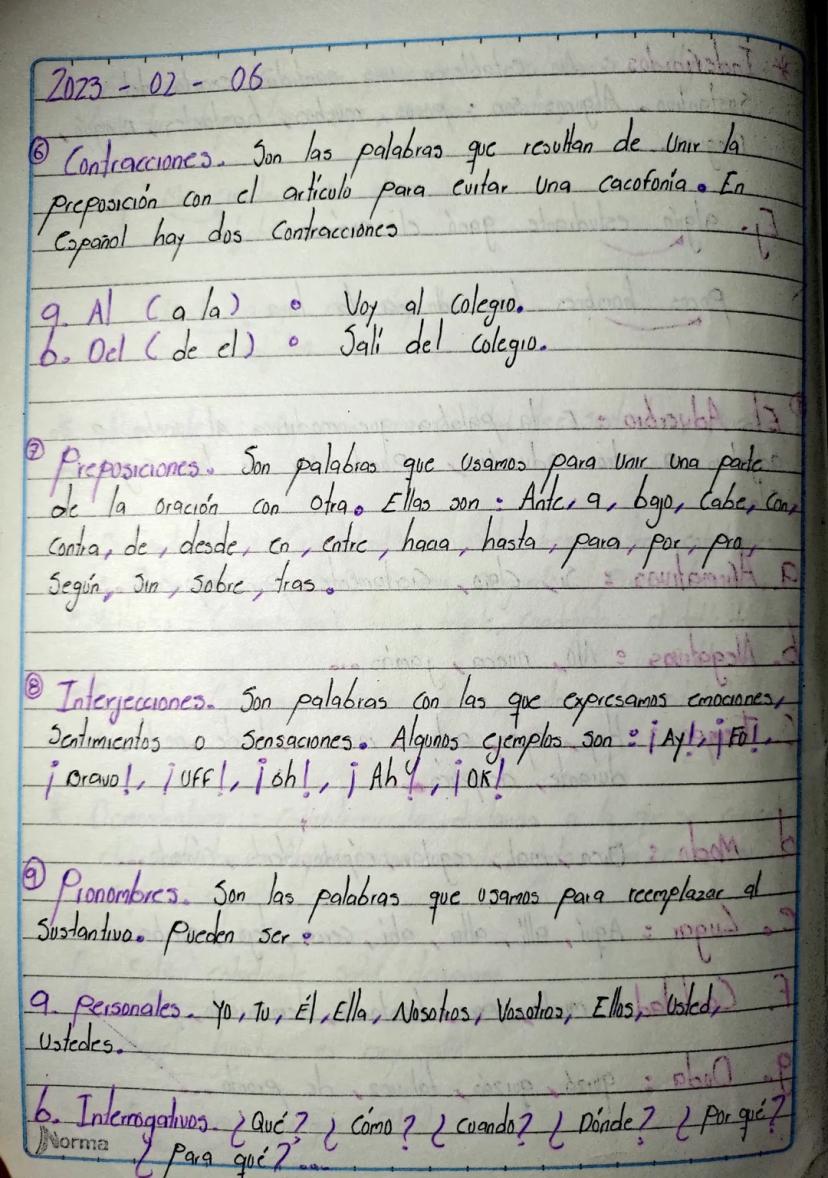 2023 - 02 - 06
⑥ Contracciones. Son las palabras que resultan de unir la
preposición con el artículo para evitar una cacofonía. En
Español hay dos contracciones
a. Al (a la) • Voy al colegio.
b. Del (de el) • Salí del colegio.
⑦ Preposiciones. Son palabras que usamos para unir una parte
de la oración con otra. Ellas son: Ante, a, bajo, cabe, con,
contra, de, desde, en, entre, hacia, hasta, para, por, pro,
según, sin, sobre, tras.
⑧ Interjecciones. Son palabras con las que expresamos emociones,
sentimientos o sensaciones. Algunos ejemplos son: ¡Ay!, ¡Fo!,
¡Bravo!, ¡UFF!, ¡oh!, ¡Ah!, ¡OK!
⑨ Pronombres. Son las palabras que usamos para reemplazar al
sustantivo. Pueden ser:
a. Personales. Yo, Tu, Él, Ella, Nosotros, Vosotros, Ellos, Usted,
Ustedes.
b. Interrogativos. ¿Qué? ¿Cómo? ¿Cuando? ¿Dónde? ¿Por qué?
Norma
¿Para qué?...